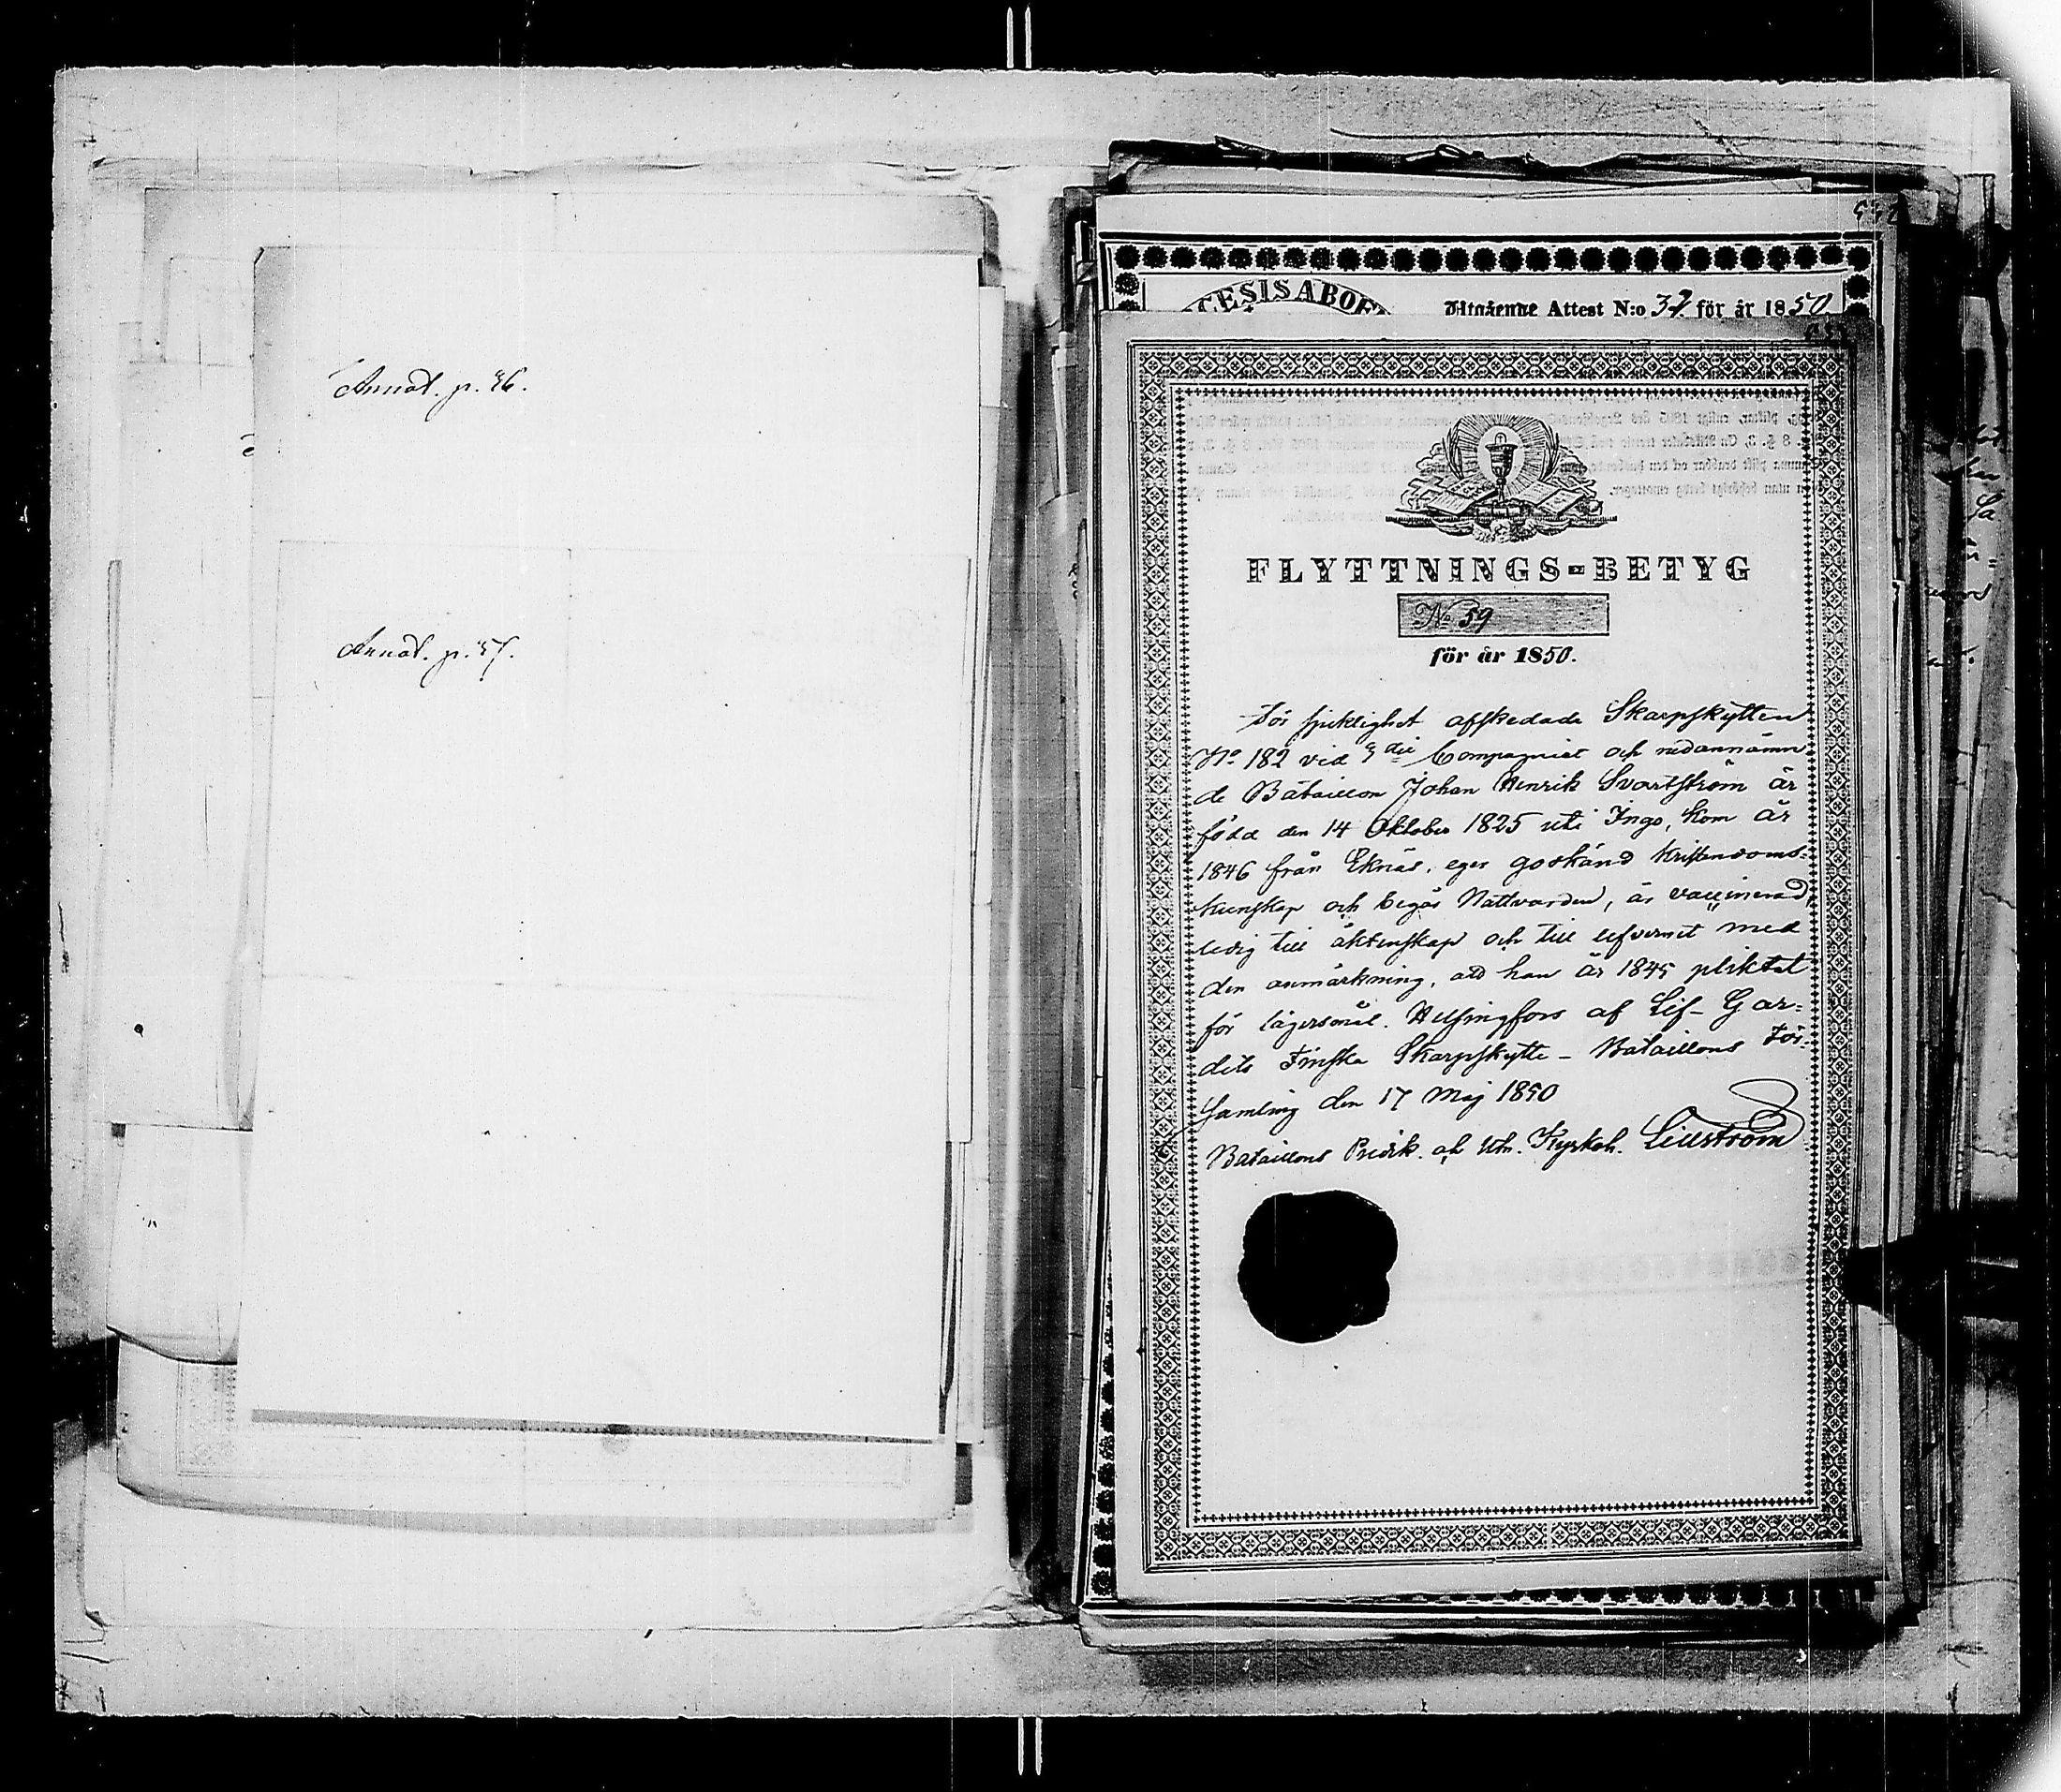 Annot. p. 46.
Annot. p. 47.
Utgående Attest N:o 32 för år 1850
FLYTTNINGS-BETYG
No 59
för år 1850.
För sjuklighet afskedade Skarpskytten
No 182 vid 3die Compagniet och nedannämn
de Bataillon Johan Henrik Svartström är
född den 14 Oktober 1825 uti Ingo, kom år
1846 från Eknäs, eger godkänd Kristendoms-
kunskap och begår Nattvarden, är vaccinerad,
ledig till äktenskap och till lefvernet med
den anmärkning, att han år 1845 pliktat
för lägersmål. Helsingfors af Lif-Gar-
dets Finska Skarpskytte-Bataillons För-
samling den 17 Maj 1850
Bataillons Predik. och Utn. Kyrkoh. Lillström